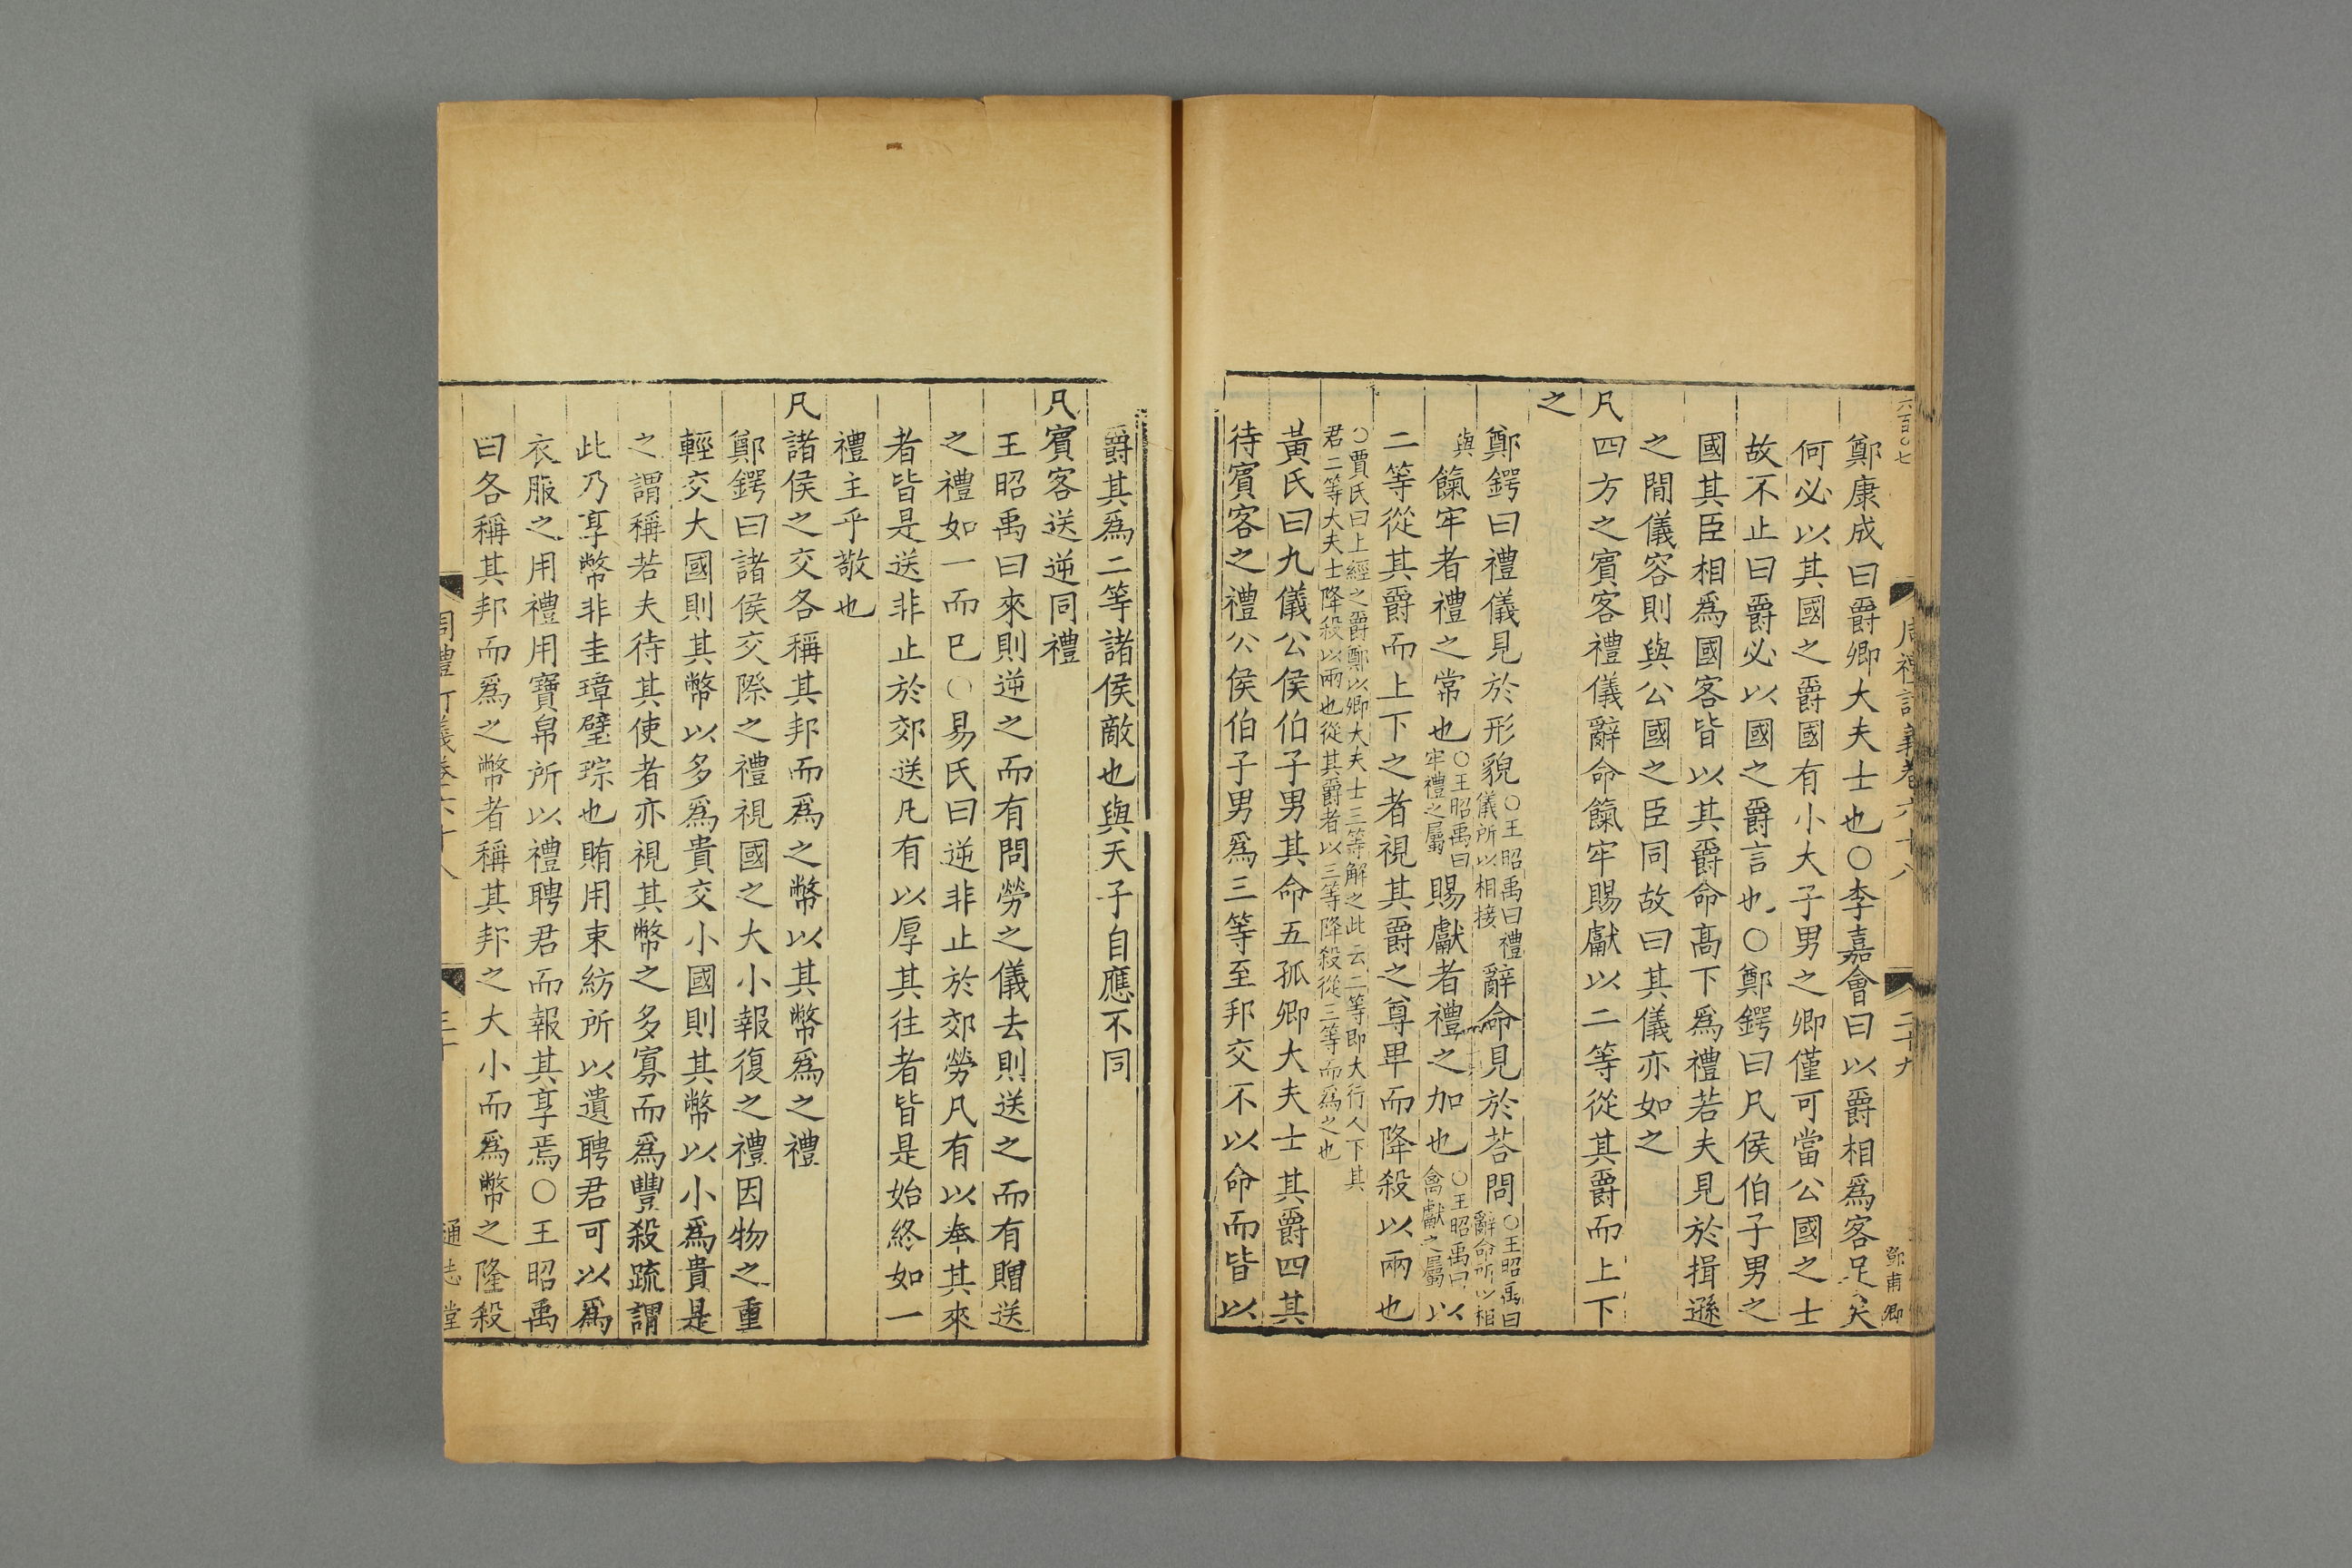 六百〇七
周禮訂義卷六十八
二十九
鄧甫卿
鄭康成曰爵卿大夫士也〇李嘉會曰以爵相爲客足矣
何必以其國之爵國有小大子男之卿僅可當公國之士
故不止曰爵必以國之爵言也〇鄭鍔曰凡侯伯子男之
國其臣相爲國客皆以其爵命高下爲禮若夫見於揖遜
之閒儀容則與公國之臣同故曰其儀亦如之
凡四方之賓客禮儀辭命餼牢賜獻以二等從其爵而上下
之
鄭鍔曰禮儀見於形貌〇王昭禹曰禮儀所以相接辭命見於荅問〇王昭禹曰辭命所以相
與餼牢者禮之常也〇王昭禹曰牢禮之屬賜獻者禮之加也〇王昭禹曰禽獻之屬以
二等從其爵而上下之者視其爵之尊卑而降殺以兩也
〇賈氏曰上經之爵鄭以卿大夫士三等解之此云二等即大行人下其
君二等大夫士降殺以兩也從其爵者以三等降殺從三等而爲之也
黃氏曰九儀公侯伯子男其命五孤卿大夫士其爵四其
待賓客之禮公侯伯子男爲三等至邦交不以命而皆以
爵其爲二等諸侯敵也與天子自應不同
凡賓客送逆同禮
王昭禹曰來則逆之而有問勞之儀去則送之而有贈送
之禮如一而已〇易氏曰逆非止於郊勞凡有以奉其來
者皆是送非止於郊送凡有以厚其往者皆是始終如一
禮主乎敬也
凡諸侯之交各稱其邦而爲之幣以其幣爲之禮
鄭鍔曰諸侯交際之禮視國之大小報復之禮因物之重
輕交大國則其幣以多爲貴交小國則其幣以小爲貴是
之謂稱若夫待其使者亦視其幣之多寡而爲豐殺疏謂
此乃享幣非圭璋璧琮也賄用束紡所以遺聘君可以爲
衣服之用禮用寶帛所以禮聘君而報其享焉〇王昭禹
曰各稱其邦而爲之幣者稱其邦之大小而爲幣之隆殺
周禮訂義卷六十八
三十
通志堂